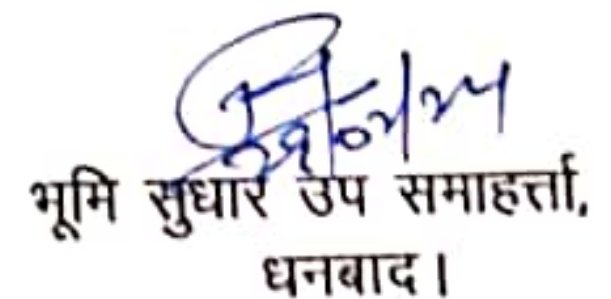 भूमि सुधार उप समाहर्त्ता,
धनबाद।